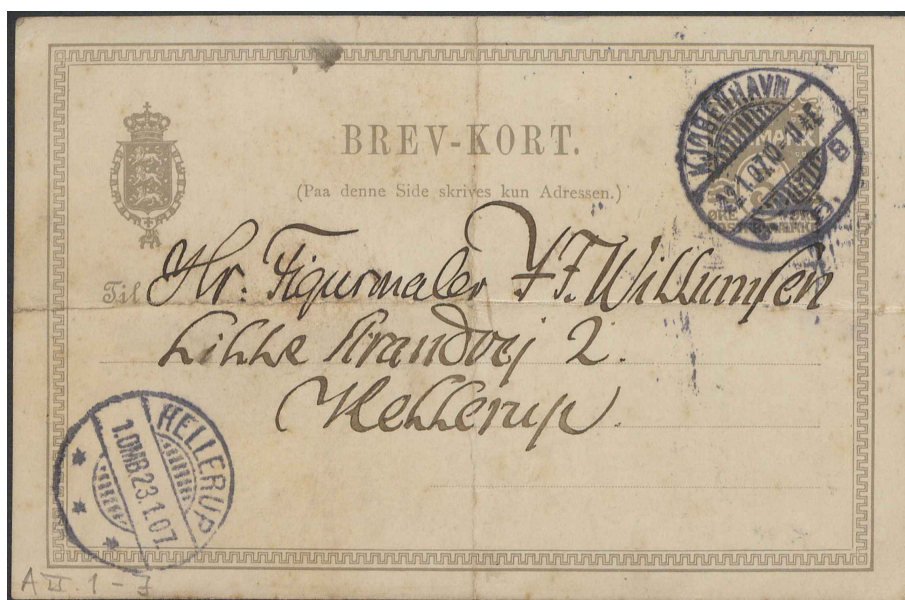 BREV-KORT.
(Paa denne Side skrives kun Adressen.)
KJØBENHAVN
B.
Til Hr: Figurmaler J F. Willumsen
Lille Strandvej 2.
Hellerup.
HELLERUP
1.OMB.23.1.07.
A II. 1 - J